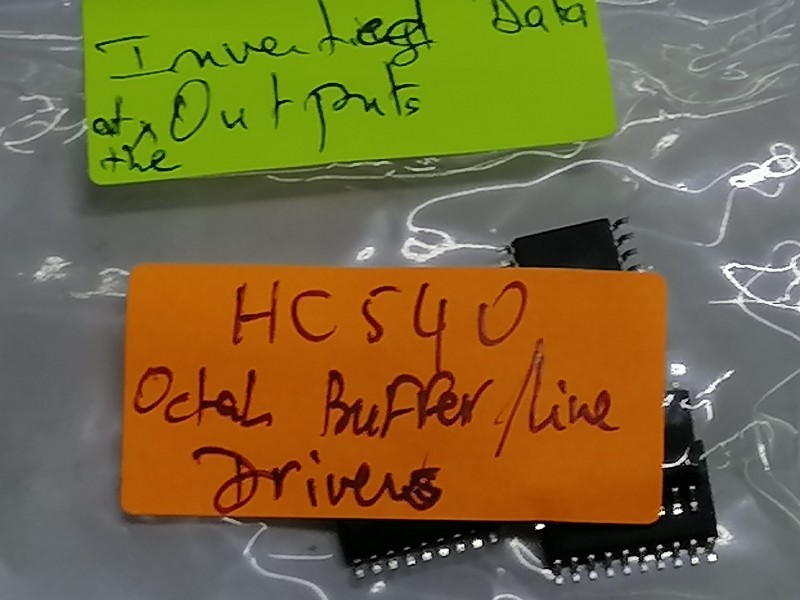 Inverted Data
at the Outputs
HC540
Octal Buffer/Line
Drivers